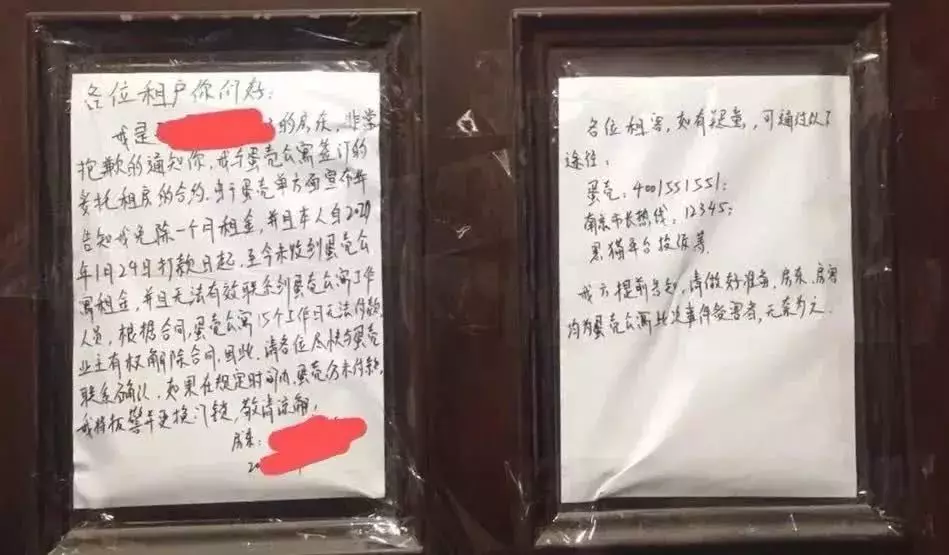 各位租户你们好：
我是 的房东，非常
抱歉的通知你，我与蛋壳公寓签订的
委托租房的合约，由于蛋壳单方面宣布并
告知我免除一个月租金，并且本人自2020
年1月24日打款日起，至今未收到蛋壳公
寓租金，并且无法有效联系到蛋壳公寓工作
人员，根据合同，蛋壳公寓15个工作日无法付款，
业主有权解除合同，因此，请各位尽快与蛋壳
联系确认，如果在规定时间内，蛋壳仍未付款，
我将报警并更换门锁，敬请谅解，
房东：
20
各位租客，如有疑虑，可通过以下
途径：
蛋壳：4001551551；
南京市长热线：12345；
黑猫平台投诉等
我方提前告知，请做好准备，房东、房客
均为蛋壳公寓此次事件受害者，无奈为之.